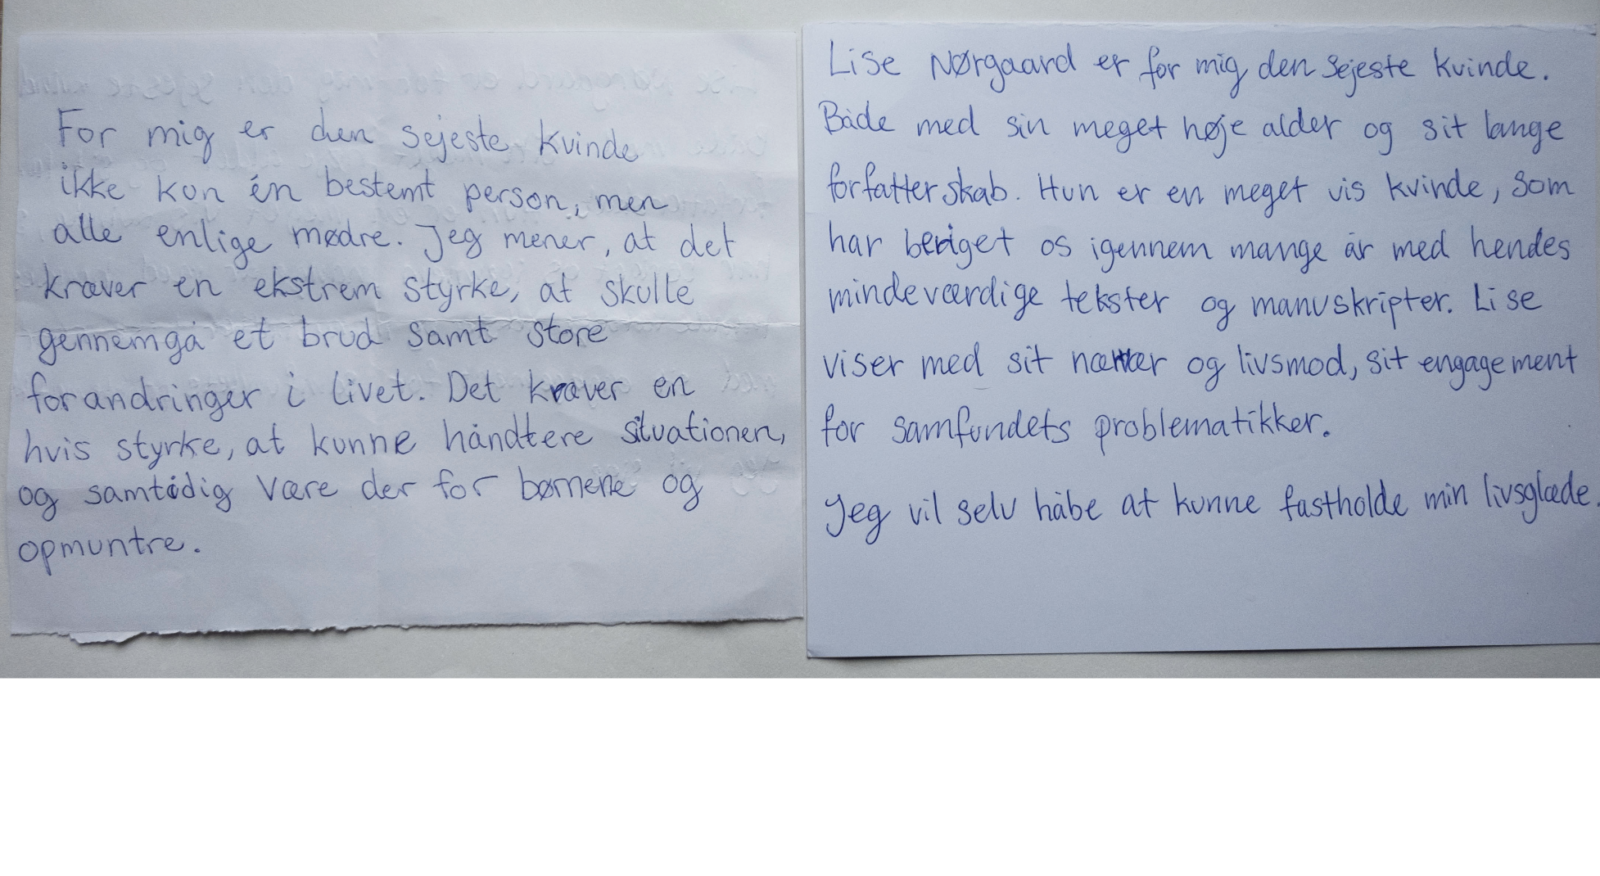 For mig er den sejeste kvinde
ikke kun én bestemt person, men
alle enlige mødre. Jeg mener, at det
kræver en ekstrem styrke, at skulle
gennemgå et brud samt store
forandringer i livet. Det kræver en
hvis styrke, at kunne håndtere situationen,
og samtidig være der for børnene og
opmuntre.
Lise Nørgaard er for mig den sejeste kvinde.
Både med sin meget høje alder og sit lange
forfatterskab. Hun er en meget vis kvinde, som
har beriget os igennem mange år med hendes
mindeværdige tekster og manuskripter. Lise
viser med sit nærvær og livsmod, sit engagement
for samfundets problematikker.
Jeg vil selv håbe at kunne fastholde min livsglæde.